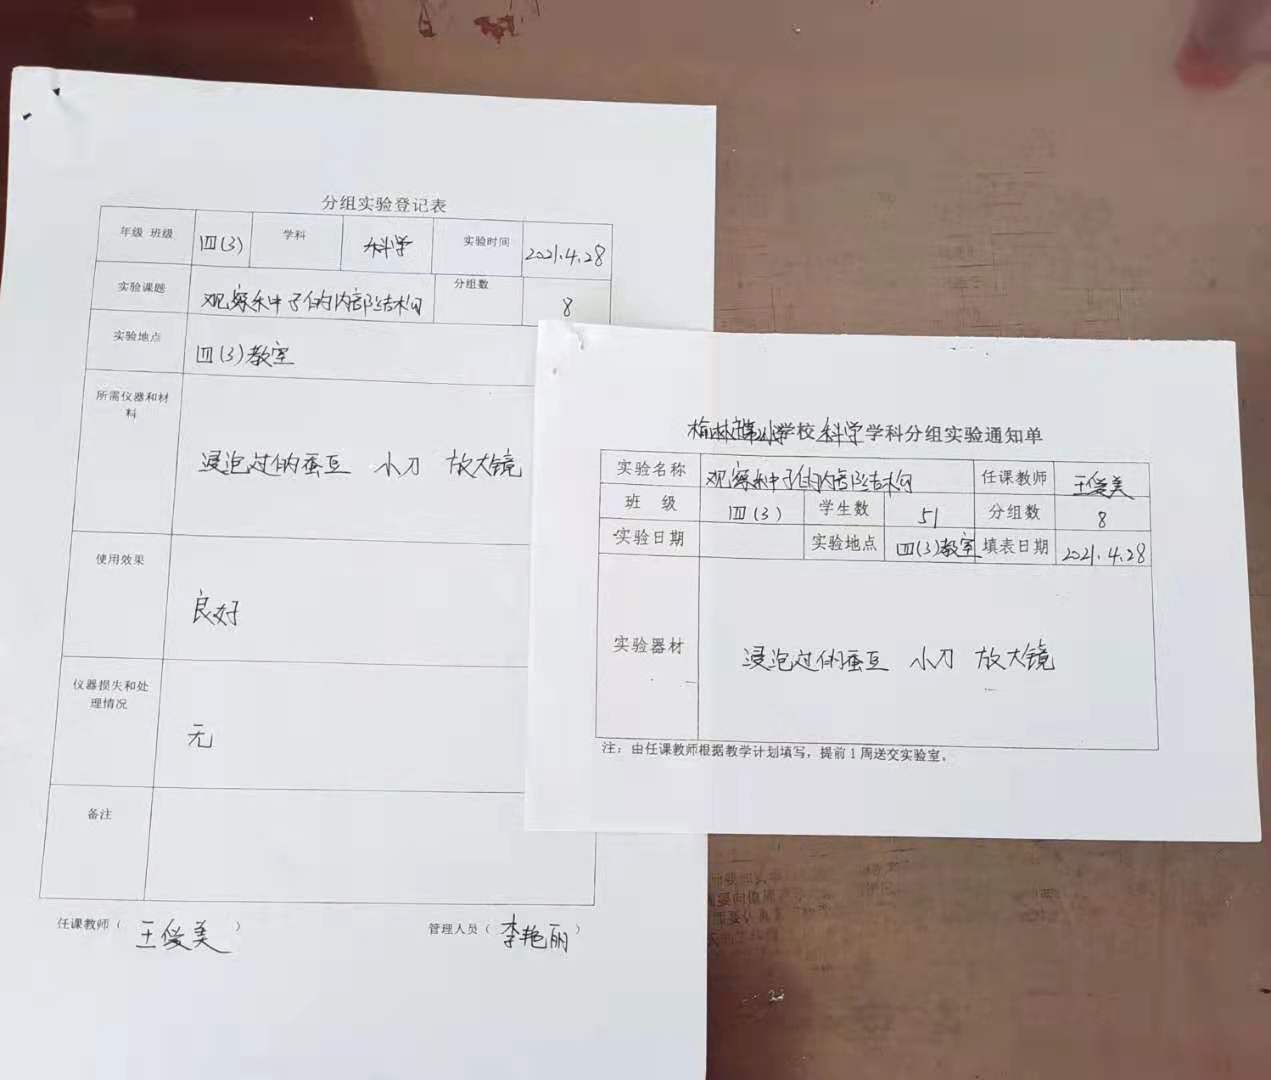 分组实验登记表
年级 班级 四(3) 学科 科学 实验时间 2021.4.28
实验课题 观察种子的内部结构 分组数 8
实验地点 四(3)教室
所需仪器和材
料
浸泡过的蚕豆 小刀 放大镜
使用效果
良好
仪器损失和处
理情况
无
备注
任课教师( 王俊美 ) 管理人员( 李艳丽 )
学校 科学 学科分组实验通知单
实验名称 观察种子的内部结构 任课教师 王俊美
班 级 四(3) 学生数 51 分组数 8
实验日期 实验地点 四(3)教室 填表日期 2021.4.28
实验器材 浸泡过的蚕豆 小刀 放大镜
注:由任课教师根据教学计划填写,提前1周送交实验室。